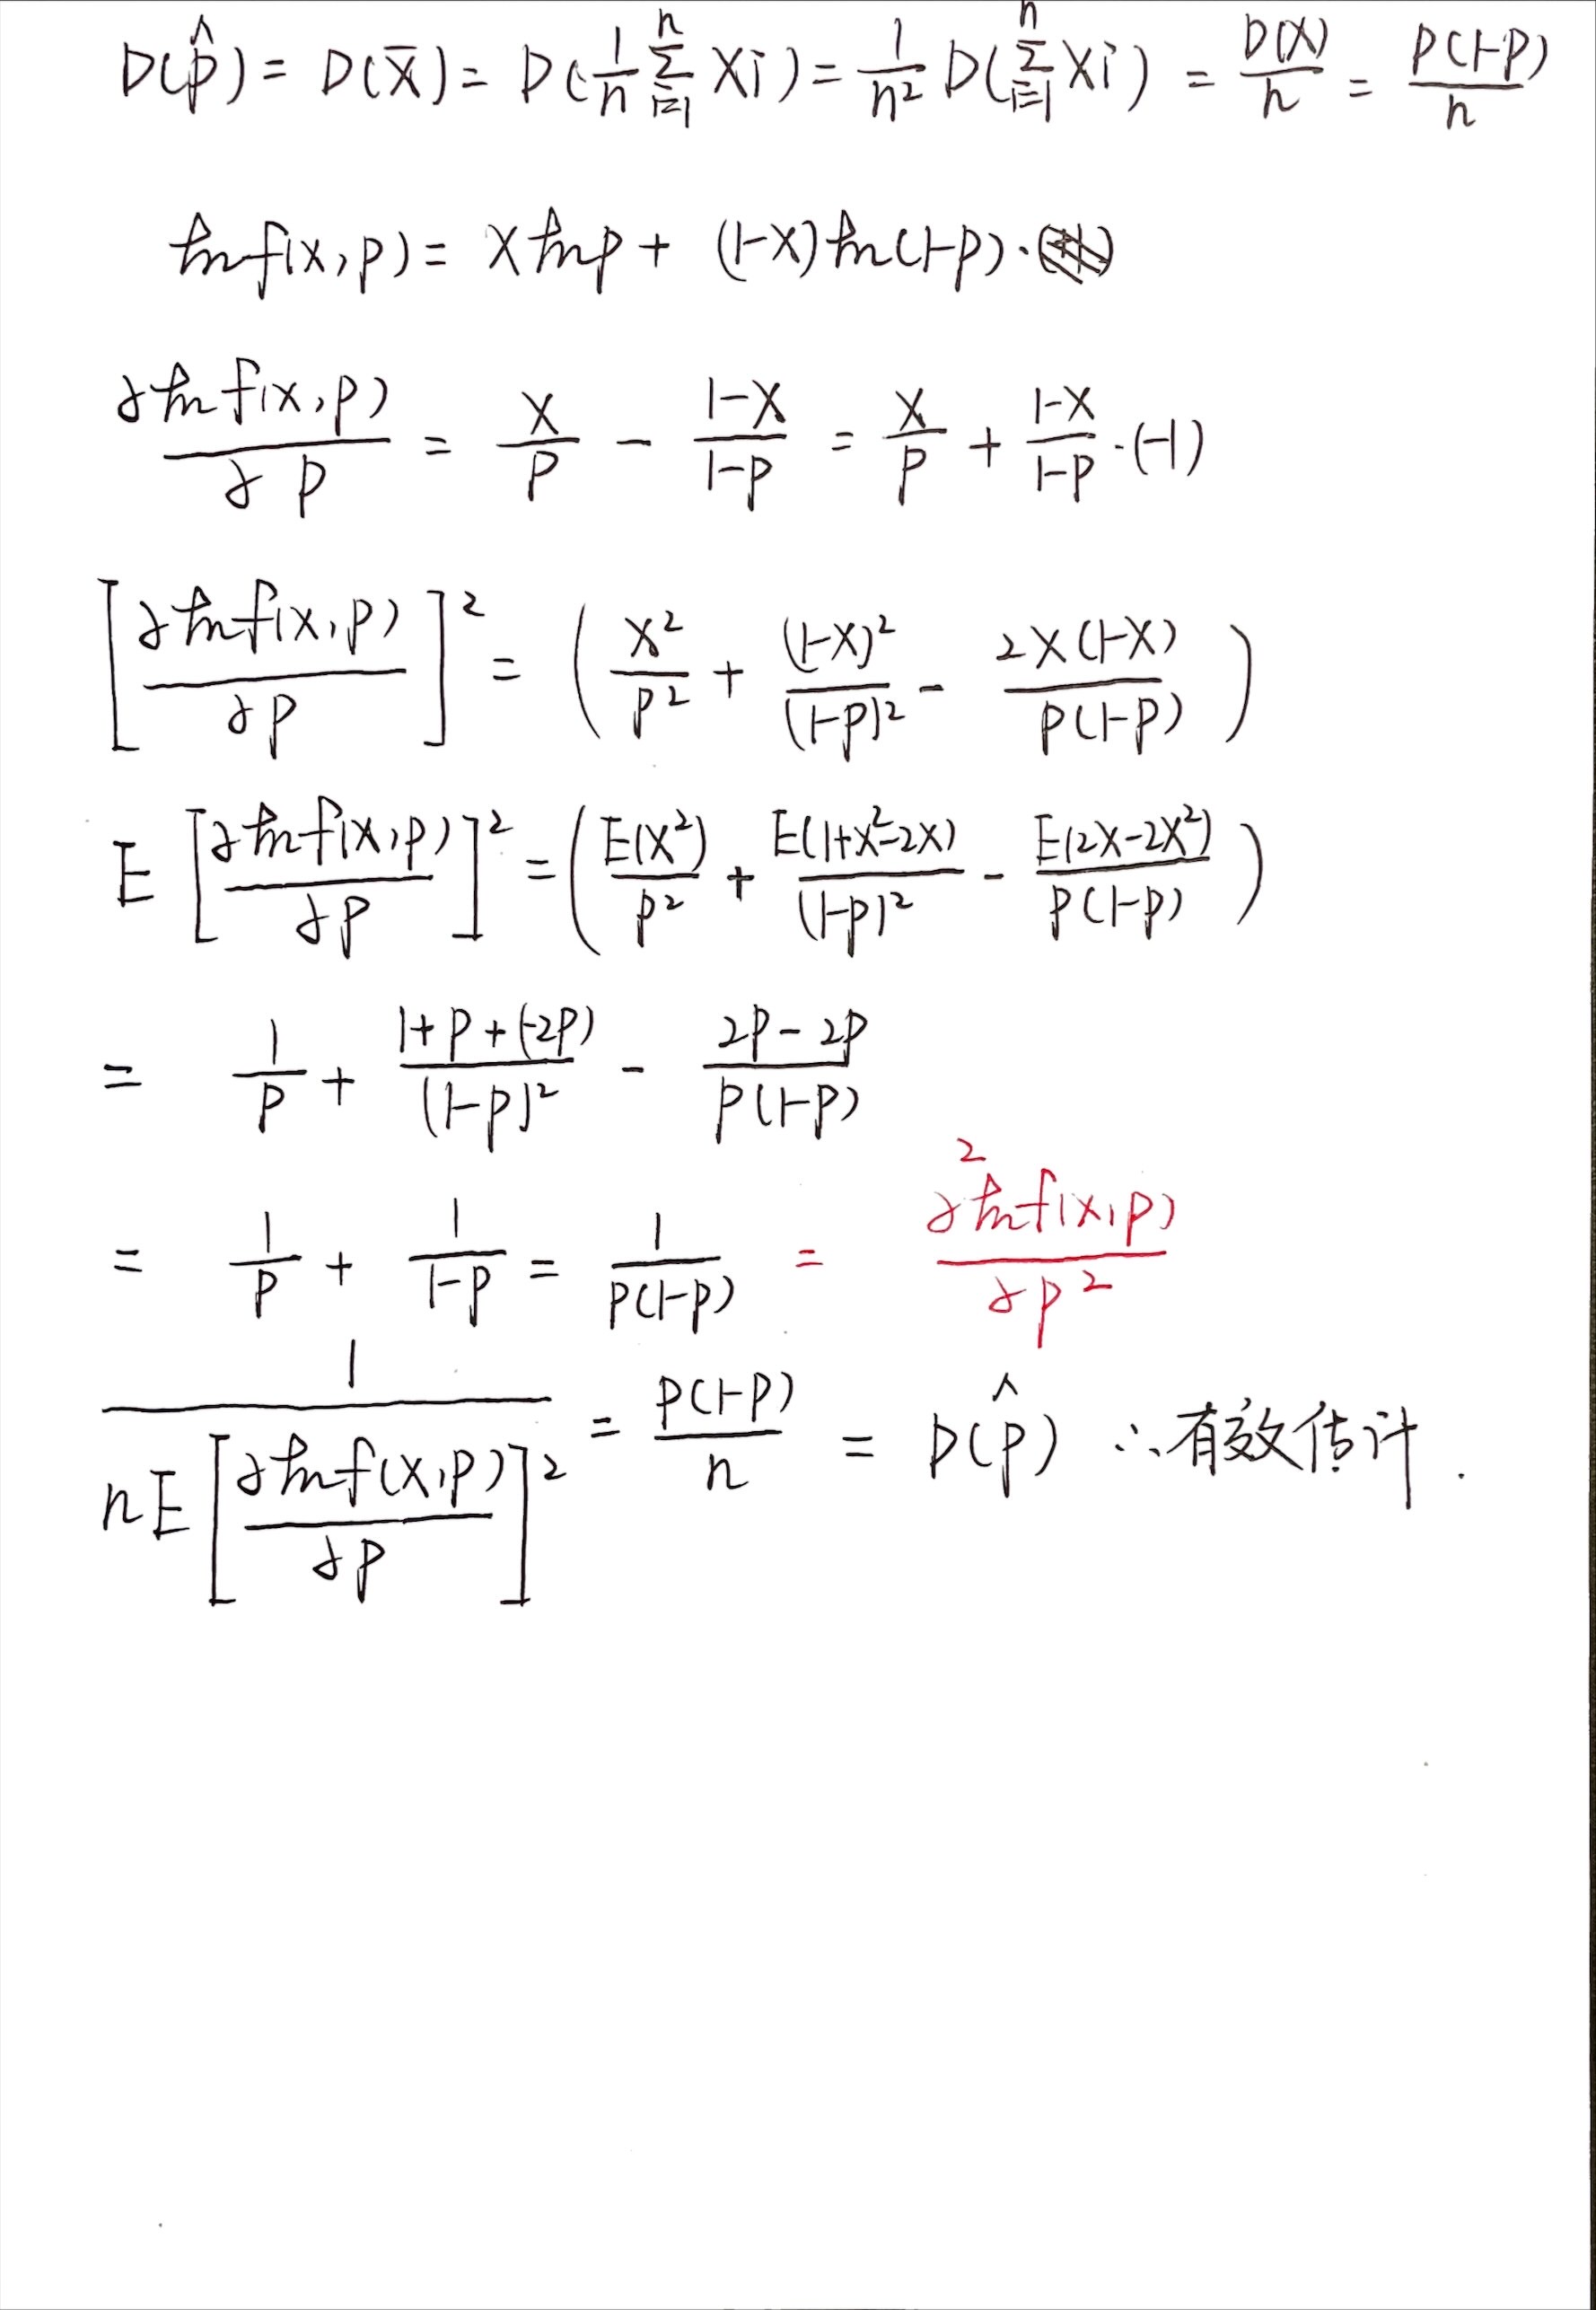 D(p̂) = D(X̄) = D(1/n ∑_{i=1}^{n} Xi) = 1/n² D(∑_{i=1}^{n} Xi) = D(X)/n = P(1-P)/n
ln f(x, p) = x ln p + (1-x) ln(1-p) ·
∂ ln f(x, p)/∂p = x/p - (1-x)/(1-p) = x/p + (1-x)/(1-p) · (-1)
[∂ ln f(x, p)/∂p]² = (x²/p² + (1-x)²/(1-p)² - 2x(1-x)/(p(1-p)))
E[∂ ln f(x, p)/∂p]² = (E(x²)/p² + E(1+x²-2x)/(1-p)² - E(2x-2x²)/(p(1-p)))
= 1/p + (1+p+(-2p))/(1-p)² - (2p-2p)/(p(1-p))
= 1/p + 1/(1-p) = 1/(p(1-p)) = ∂² ln f(x, p)/∂p²
1/(nE[∂ ln f(x, p)/∂p]²) = p(1-p)/n = D(p̂) ∴有效估计.